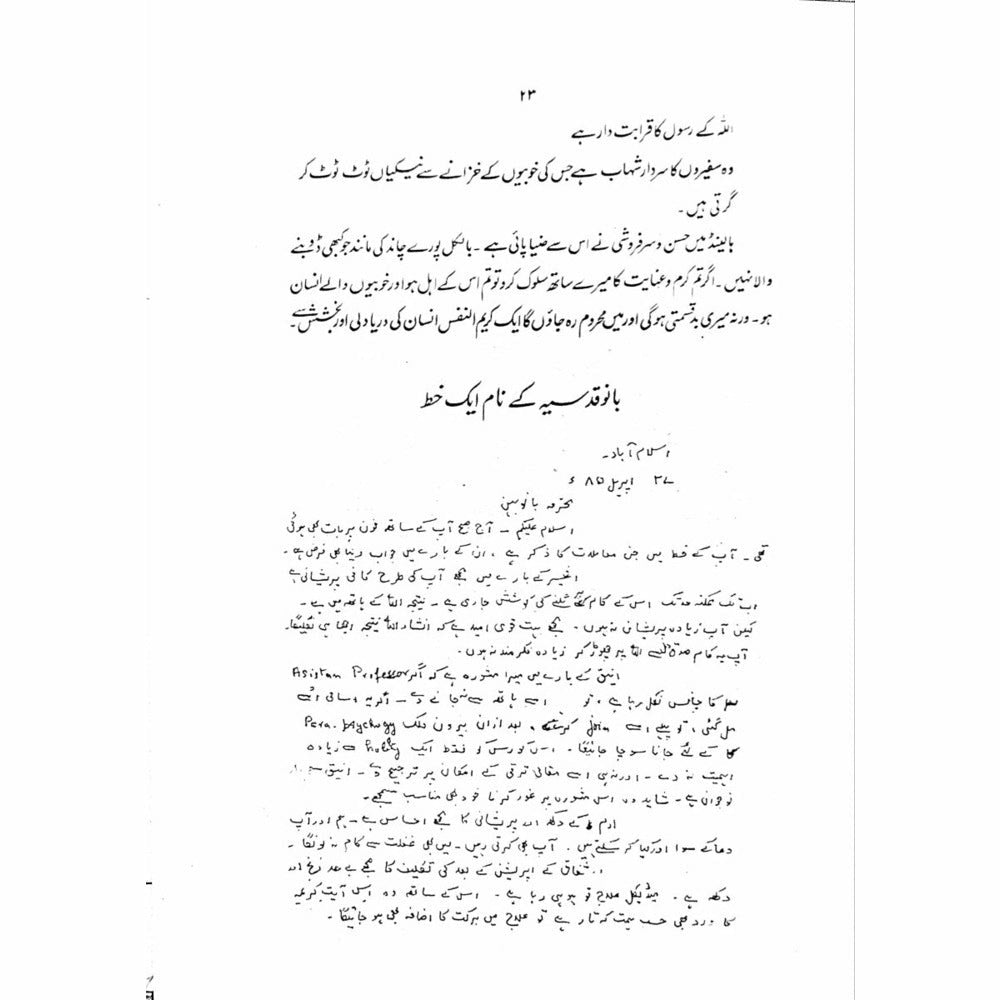 ۲۳
اللہ کے رسول کا قرابت دار ہے
وہ سفیروں کا سردار شہاب ہے جس کی خوبیوں کے خزانے سے نیکیاں ٹوٹ ٹوٹ کر
گرتی ہیں ۔
ہالینڈ میں حسن و سرفروشی نے اس سے ضیا پائی ہے ۔ بالکل پورے چاند کی مانند جو کبھی ڈوبنے
والا نہیں ۔ اگر تم کرم و عنایت کا میرے ساتھ سلوک کرو تو تم اس کے اہل ہو اور خوبیوں والے انسان
ہو ۔ ورنہ میری بدقسمتی ہوگی اور میں محروم رہ جاؤں گا ایک کریم النفس انسان کی دریا دلی اور بخشش سے ۔
بانو قدسیہ کے نام ایک خط
اسلام آباد ۔
۲۷ اپریل ۸۵ ء
محترمہ بانو بہن
اسلام علیکم – آج صبح آپ کے ساتھ فون پر بات بھی ہوئی
تھی ۔ آپ کے خط میں جن معاملات کا ذکر ہے ، ان کے بارے میں جواب دینا بھی فرض ہے ۔
اثیر کے بارے میں مجھے آپ کی طرح کافی پریشانی ہے
اب تک ممکنہ حد تک اس کے کام کی کوشش جاری ہے ۔ نتیجہ اللہ کے ہاتھ میں ہے ۔
لیکن آپ زیادہ پریشان نہ ہوں ۔ مجھے بہت قوی امید ہے کہ انشاءاللہ نتیجہ اچھا ہی نکلیگا ۔
آپ یہ کام اللہ پر چھوڑ کر زیادہ فکرمند نہ ہوں ۔
انیق کے بارے میں میرا مشورہ ہے کہ اگر Asistan Professor
کا چانس نکل رہا ہے ، تو اسے ہاتھ سے نہ جانے دے – اگر یہ آسامی اسے
مل گئی ، تو پہلے اسے Join کرے ، بعد ازاں بیرون ملک Para. psychology
کے لئے جانا سوچا جائیگا ۔ اس کورس کو فقط ایک hobby سے زیادہ
اہمیت نہ دے – اور نہ ہی اسے مقامی ترقی کے امکان پر ترجیح دے – انیق
نوجوان ہے – شاید وہ اس مشورہ پر غور کرنا خود بھی مناسب سمجھے ۔
ارم کے دکھ اور پریشانی کا مجھے احساس ہے – ہم اور آپ
دعا کے سوا اور کیا کر سکتے ہیں . آپ بھی کرتی رہیں – میں بھی غفلت سے کام نہ لونگا ۔
اشفاق کے اپریشن کے بعد کی تکلیف کا مجھے بے حد رنج اور
دکھ ہے . میڈیکل علاج تو ہو ہی رہا ہے . اس کے ساتھ وہ اس آیت کریمہ
کا ورد بھی حسب ہمت کرتا رہے تو علاج میں برکت کا اضافہ بھی ہو جائیگا ۔